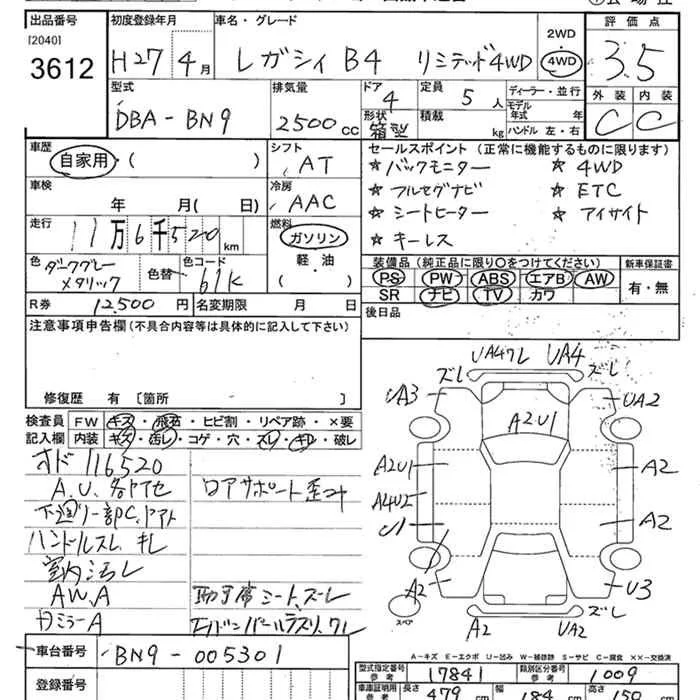 出品番号 初度登録年月 車名・グレード 2WD 評価点
[2040]
3612 H27 4月 レガシィ B4 リミテッド4WD 4WD 3.5
型式 排気量 ドア 定員 ディーラー・並行 外装 内装
DBA-BN9 2500cc 4 5人 モデル年式 年 C C
形状 箱型 積載 kg ハンドル 左・右
車歴 シフト セールスポイント (正常に機能するものに限ります)
自家用・( ) AT ★バックモニター ★ 4WD
車検 冷房 ★ フルセグナビ ★ ETC
年 月( 日) AAC ★ シートヒーター ★ アイサイト
走行 燃料 ★ キーレス
11万6千520km ガソリン
軽・油
( )
色 色替 色コード 装備品 (純正品に限り○をつけてください) 新車保証書
ダークグレーメタリック 61K PS PW ABS エアB AW 有・無
SR ナビ TV カワ
R券 12,500円 名変期限 月 日 後日品
注意事項申告欄 (不具合内容等は具体的に記入して下さい)
修復歴 有 [箇所 ]
検査員記入欄 FW キズ・飛石・ヒビ割・リペア跡・×要
内装 キズ・汚レ・コゲ・穴・スレ・キレ・破レ
オド 116520
A.U.各ヤセ ロアサポート歪コ
下廻リ一部C.
ハンドルスレ、キレ
室内汚レ
AW.A 助手席シート、ズーレ
ミラーA
車台番号 BN9-005301
登録番号
UA4ワレ UA4
ズレ ズレ
UA3 UA2
A2U1
A2U1 A2
A4U2
U1 A2
A2 U3
スペア ズレ
A2 UA2
A-キズ E-エクボ U-凹み W-補修跡 S-サビ C-腐食 ××-交換済
型式指定番号 参考 17841 類別区分番号 参考 1009
車庫証明用 参考 長さ 479cm 幅 184cm 高さ 150cm